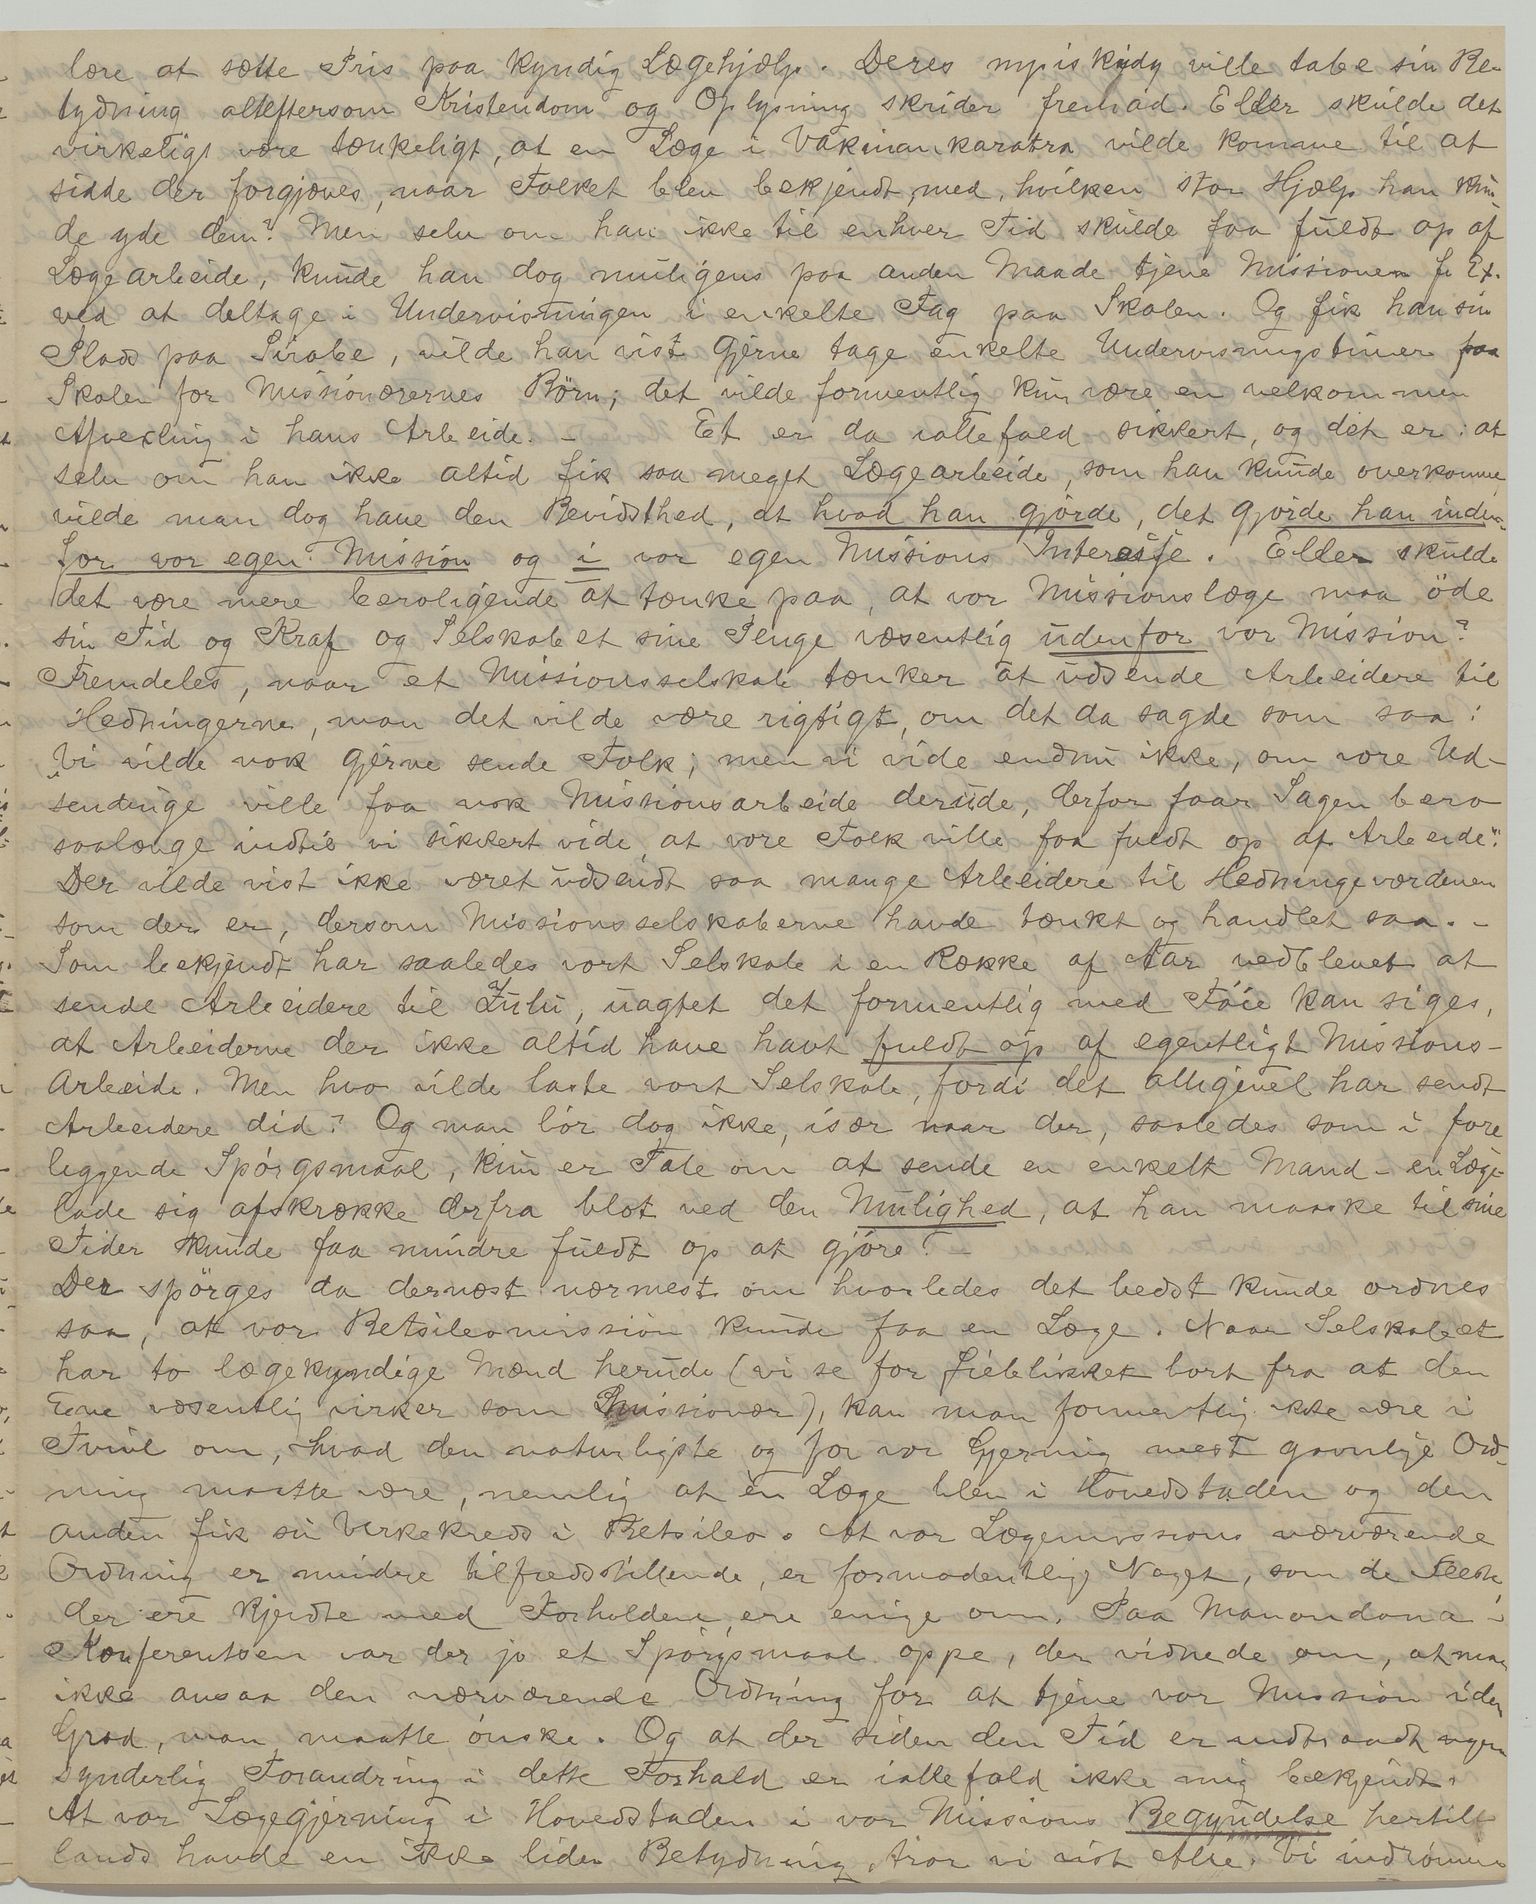 lære at sætte Pris paa kyndig Lægehjælp. Deres mpiskidy ville tabe sin Be-
tydning alteftersom Kristendom og Oplysning skrider fremad. Eller skulde det
virkeligt være tænkeligt, at en Læge i Vakinankaratra vilde komme til at
sidde der forgjæves, naar Folket blev bekjendt med, hvilken stor Hjælp han kun-
de yde dem? Men selv om han ikke til enhver Tid skulde faa fuldt op af
Lægearbeide, kunde han dog muligens paa anden Maade tjene Missionen f. Ex.
ved at deltage i Undervisningen i enkelte Fag paa Skolen. Og fik han sin
Plads paa Sirabe, vilde han vist gjerne tage enkelte Undervisningstimer paa
Skolen for Missionærernes Börn; det vilde formentlig kun være en velkommen
Afvexling i hans Arbeide. - Et er da iallefald sikkert, og det er: at
selv om han ikke altid fik saa meget Lægearbeide, som han kunde overkomme,
vilde man dog have den Bevidsthed, at hvad han gjörde, det gjorde han inden-
for vor egen Mission og i vor egen Missions Interesse. Eller skulde
det være mere beroligende at tænke paa, at vor Missionslæge maa öde
sin Tid og Kraf og Selskabet sine Penge væsentlig udenfor vor Mission?
Fremdeles, naar et Missionsselskab tænker at udsende Arbeidere til
Hedningerne, mon det vilde være rigtigt, om det da sagde som saa:
"Vi vilde nok gjerne sende Folk; men vi vide endnu ikke, om vore Ud-
sendinge ville faa nok Missionsarbeide derude, derfor faar Sagen bero
saalænge indtil vi sikkert vide, at vore Folk ville faa fuldt op af Arbeide".
Der vilde vist ikke været udsendt saa mange Arbeidere til Hedningeverdenen
som der er, dersom Missionsselskaberne havde tænkt og handlet saa. -
Som bekjendt har saaledes vort Selskab i en Række af Aar vedblevet at
sende Arbeidere til Zulu, uagtet det formentlig med Föie kan siges,
at Arbeiderne der ikke altid have havt fuldt op af egentligt Missions-
Arbeide. Men hvo vilde laste vort Selskab, fordi det alligevel har sendt
Arbeidere did? Og man bör dog ikke, især naar der, saaledes som i fore
liggende Spörgsmaal, kun er Tale om at sende en enkelt Mand - en Læge -
lade sig afskrække derfra blot ved den Mulighed, at han maaske til sine
Tider kunde faa mindre fuldt op at gjöre? -
Der spörges da dernæst nærmest om hvorledes det bedst kunde ordnes
saa, at vor Betsileomission kunde faa en Læge. Naar Selskabet
har to lægekyndige Mænd herude (vi se for Öieblikket bort fra at den
Ene væsentlig virker som Missionær), kan man formentlig ikke være i
Tvivl om, hvad den naturligste og for vor Gjerning mest gavnlige Ord-
ning maatte være, nemlig at en Læge blev i Hovedstaden og den
anden fik sin Virkekreds i Betsileo. At vor Lægemissions nærværende
Ordning er mindre tilfredsstillende, er formodentlig Noget, som de Fleste,
der ere kjendte med Forholdene, ere enige om. Paa Manandona
Konferentsen var der jo et Spörgsmaal oppe, der vidnede om, at man
ikke ansaa den nærværende Ordning for at tjene vor Mission i den
Grad, man maatte önske. Og at der siden den Tid er indtraadt nogen
synderlig Forandring i dette Forhold er iallefald ikke mig bekjendt.
At vor Lægegjerning i Hovedstaden i vor Missions Begyndelse hertil
lands havde en ikke liden Betydning, tror vi vist Alle. Vi indrömme